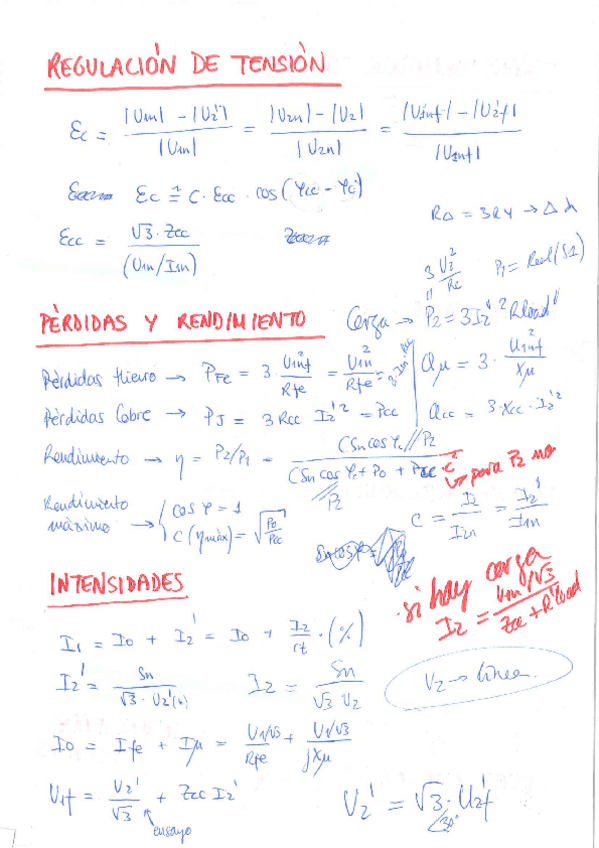 REGULACIÓN DE TENSIÓN
Ɛc = (|U1n| - |U2'|) / |U1n| = (|U2n| - |U2|) / |U2n| = (|U1nf| - |U2'f|) / |U1nf|
Ɛc ≅ C · Ɛcc · cos(φcc - φc)
RΔ = 3RY → Δ λ
Ɛcc = √3 · Zcc / (U1n/I1n)
P1 = Real(S1)
PÈRDIDAS Y RENDIMIENTO
Carga → P2 = 3I2'² Rload'
Pèrdidas Hierro → PFe = 3 · U1nf² / Rfe = U1n² / Rfe =
Qμ = 3 · U1nf² / Xμ
Pérdidas Cobre → PJ = 3Rcc I2'² = Pcc
Qcc = 3·Xcc · I2'²
Rendimiento → η = P2/P1 = CSn cos φc // P2 / (CSn cos φc + Po + Pcc c²)
P2
↳ para P2 no
Rendimiento máximo → { cos φ = 1
C(ηmáx) = √(Po/Pcc)
C = I2 / I2n = I2' / I1n
INTENSIDADES
si hay carga
I2 = (U1n/√3) / (Zcc + R'load)
I1 = Io + I2' = Io + I2/rt · (%)
I2' = Sn / (√3 · U2'(n))
I2 = Sn / (√3 U2)
U2 → línea.
Io = Ife + Iμ = (U1/√3)/Rfe + (U1/√3)/jXμ
U1f = U2'/√3 + Zcc I2'
ensayo
U2' = √3 · U2'f
∠30°